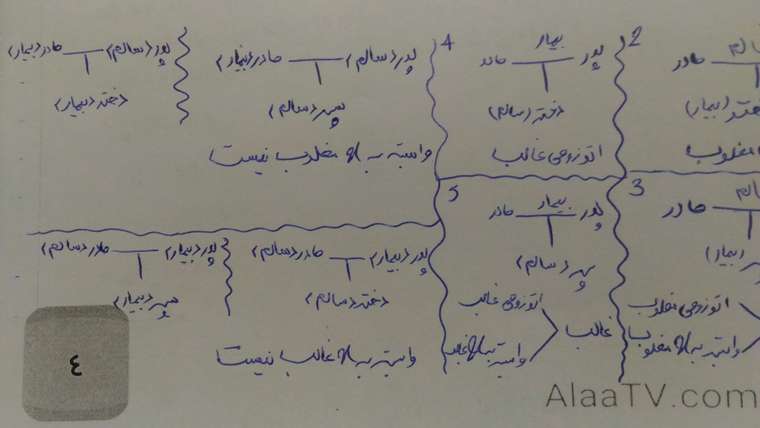 2
سالم
مادر
(بیمار)
مغلوب
بیمار
پدر مادر
دختر (سالم)
اتوزومی غالب
4
پدر (سالم) مادر (بیمار)
پسر (سالم)
وابسته به x مغلوب نیست
پدر (سالم) مادر (بیمار)
دختر (بیمار)
3
سالم
مادر
(بیمار)
اتوزومی مغلوب
وابسته به x مغلوب
بیمار
پدر مادر
پسر (سالم)
غالب
اتوزومی غالب
وابسته به x غالب
5
پدر (بیمار) مادر (سالم)
دختر (سالم)
وابسته به x غالب نیست
پدر (بیمار) مادر (سالم)
پسر (بیمار)
٤
AlaaTV.com